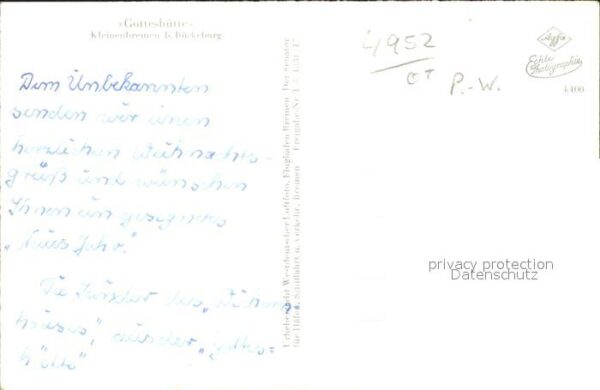 »Gotteshütte«
Kleinenbremen b. Bückeburg
Dem Unbekannten
senden wir einen
herzlichen Weihnachts-
gruß und wünschen
Ihnen ein gesegnetes
„Neues Jahr".
Die Kinder des
hauses", aus der „Gottes-
hütte"
Urheberrecht Westdeutscher Luftfoto, Flughafen Bremen Der Senator
für Häfen, Schiffahrt u. Verkehr, Bremen Freigabe-Nr.
4952
P.-W.
Agfa
Echte
Photographie
privacy protection
Datenschutz